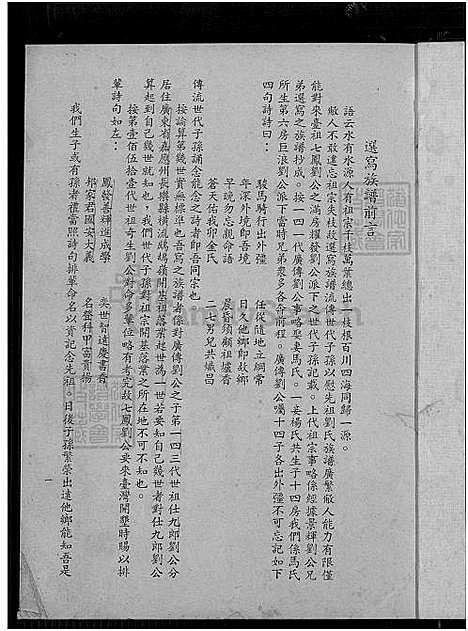 選寫族譜前言
語云水有水源人有祖宗千枝萬葉總出一枝根百川四海同歸一源。
敝人不敢遺忘祖宗失枝故選寫族譜流傳世代子孫以慰先祖劉氏族譜廣繁敝人能力有限僅
能對來臺祖七鳳劉公之滿房耀發劉公派下之世代子孫記載。上代祖宗事略係經據景輝劉公兄
弟選寫之族譜抄成。按一四一代廣傳劉公事略娶妻馬氏。一妾楊氏共生子十四房我們係馬氏
所生第六房巨浪劉公派下當時兄弟衆多各奔前程。廣傳劉公囑十四子各出外彊不可忘記如下
四句詩詩曰：
駿馬騎行出外彊　任從隨地立綱常
年深外境卽吾境　日久他鄉卽故鄉
早晚勿忘親命語　晨昏須顧祖爐香
蒼天佑我卯金氏　二七男兒共熾昌
傳流世代子孫誦念能念之詩者卽吾同宗也
按論算第幾世實無標準也吾寫之族譜者係對廣傳劉公之子第一四三代世祖仕九郎劉公分
居住廣東省嘉應州長樂縣橫流鷓鴣嶺開基祖落業起世為一世若要知自己幾世者對仕九郎劉公
算起到自己幾世就知也，我們世代子孫對祖宗開基落業之所在地不可不知也。
按第壹佰伍拾壹代世祖奇生劉公對命名輩位略有考究故七鳳劉公要來臺灣開墾時賜以排
輩詩句如左：
鳳發善輝進成學　奕世智遠慶書香
邦家君國安大義　名登科甲富貴揚
我們生子或有孫者禮當照詩句排輩命名以資記念先祖。日後子孫繁榮出遠他鄉能知吾是
一